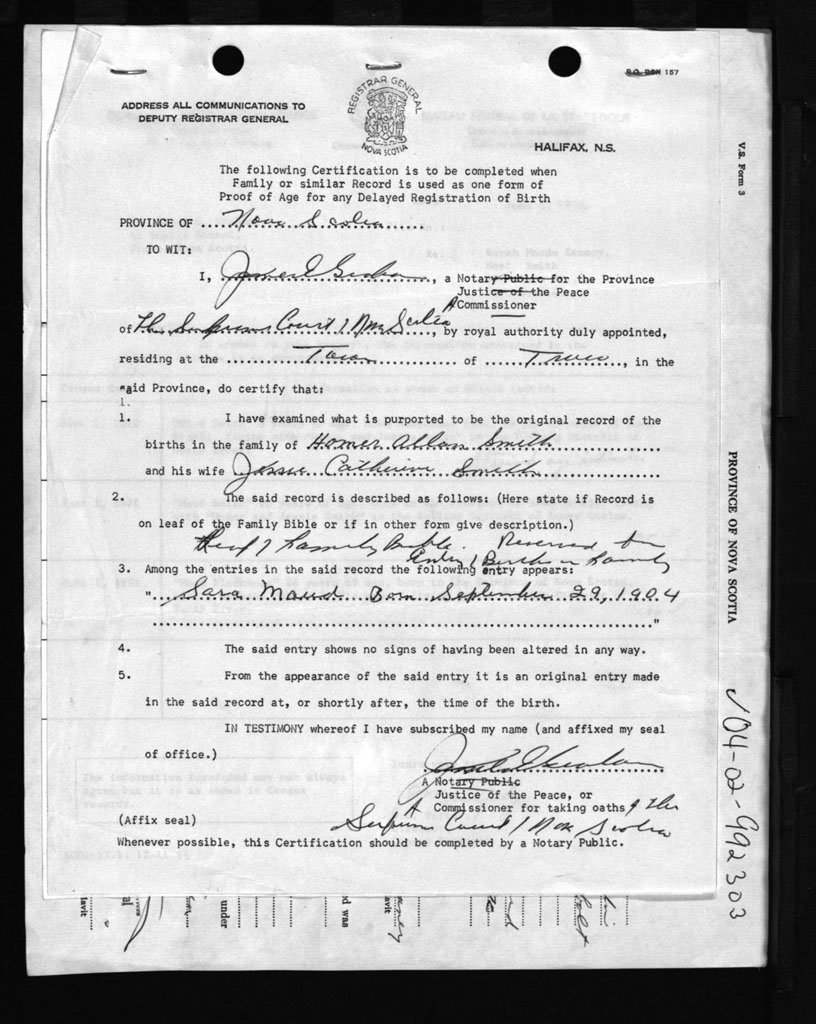 P.O. BOX 157
REGISTRAR GENERAL
NOVA SCOTIA
ADDRESS ALL COMMUNICATIONS TO
DEPUTY REGISTRAR GENERAL
HALIFAX, N.S.
V.S. Form 3
The following Certification is to be completed when
Family or similar Record is used as one form of
Proof of Age for any Delayed Registration of Birth
PROVINCE OF ....Nova Scotia........
TO WIT:
I, ..............................., a Notary Public for the Province
Justice of the Peace
A Commissioner
of The Supreme Court of Nova Scotia, by royal authority duly appointed,
residing at the ..........Town............... of ......Truro......, in the
said Province, do certify that:
1.
1. I have examined what is purported to be the original record of the
births in the family of Homer Allan Smith................
and his wife Jessie Catherine Smith..................
2. The said record is described as follows: (Here state if Record is
on leaf of the Family Bible or if in other form give description.)
Leaf of Family Bible. Reserved for
Entry of Births in Family
3. Among the entries in the said record the following entry appears:
"...Sara Maud Born September 29, 1904
......................................................................"
4. The said entry shows no signs of having been altered in any way.
5. From the appearance of the said entry it is an original entry made
in the said record at, or shortly after, the time of the birth.
IN TESTIMONY whereof I have subscribed my name (and affixed my seal
of office.)
A Notary Public
Justice of the Peace, or
A Commissioner for taking oaths of the
Supreme Court of Nova Scotia
(Affix seal)
Whenever possible, this Certification should be completed by a Notary Public.
PROVINCE OF NOVA SCOTIA
√04-02-992303
The information furnished may not always
Agree but it is as shown in Census
records.
under
d was